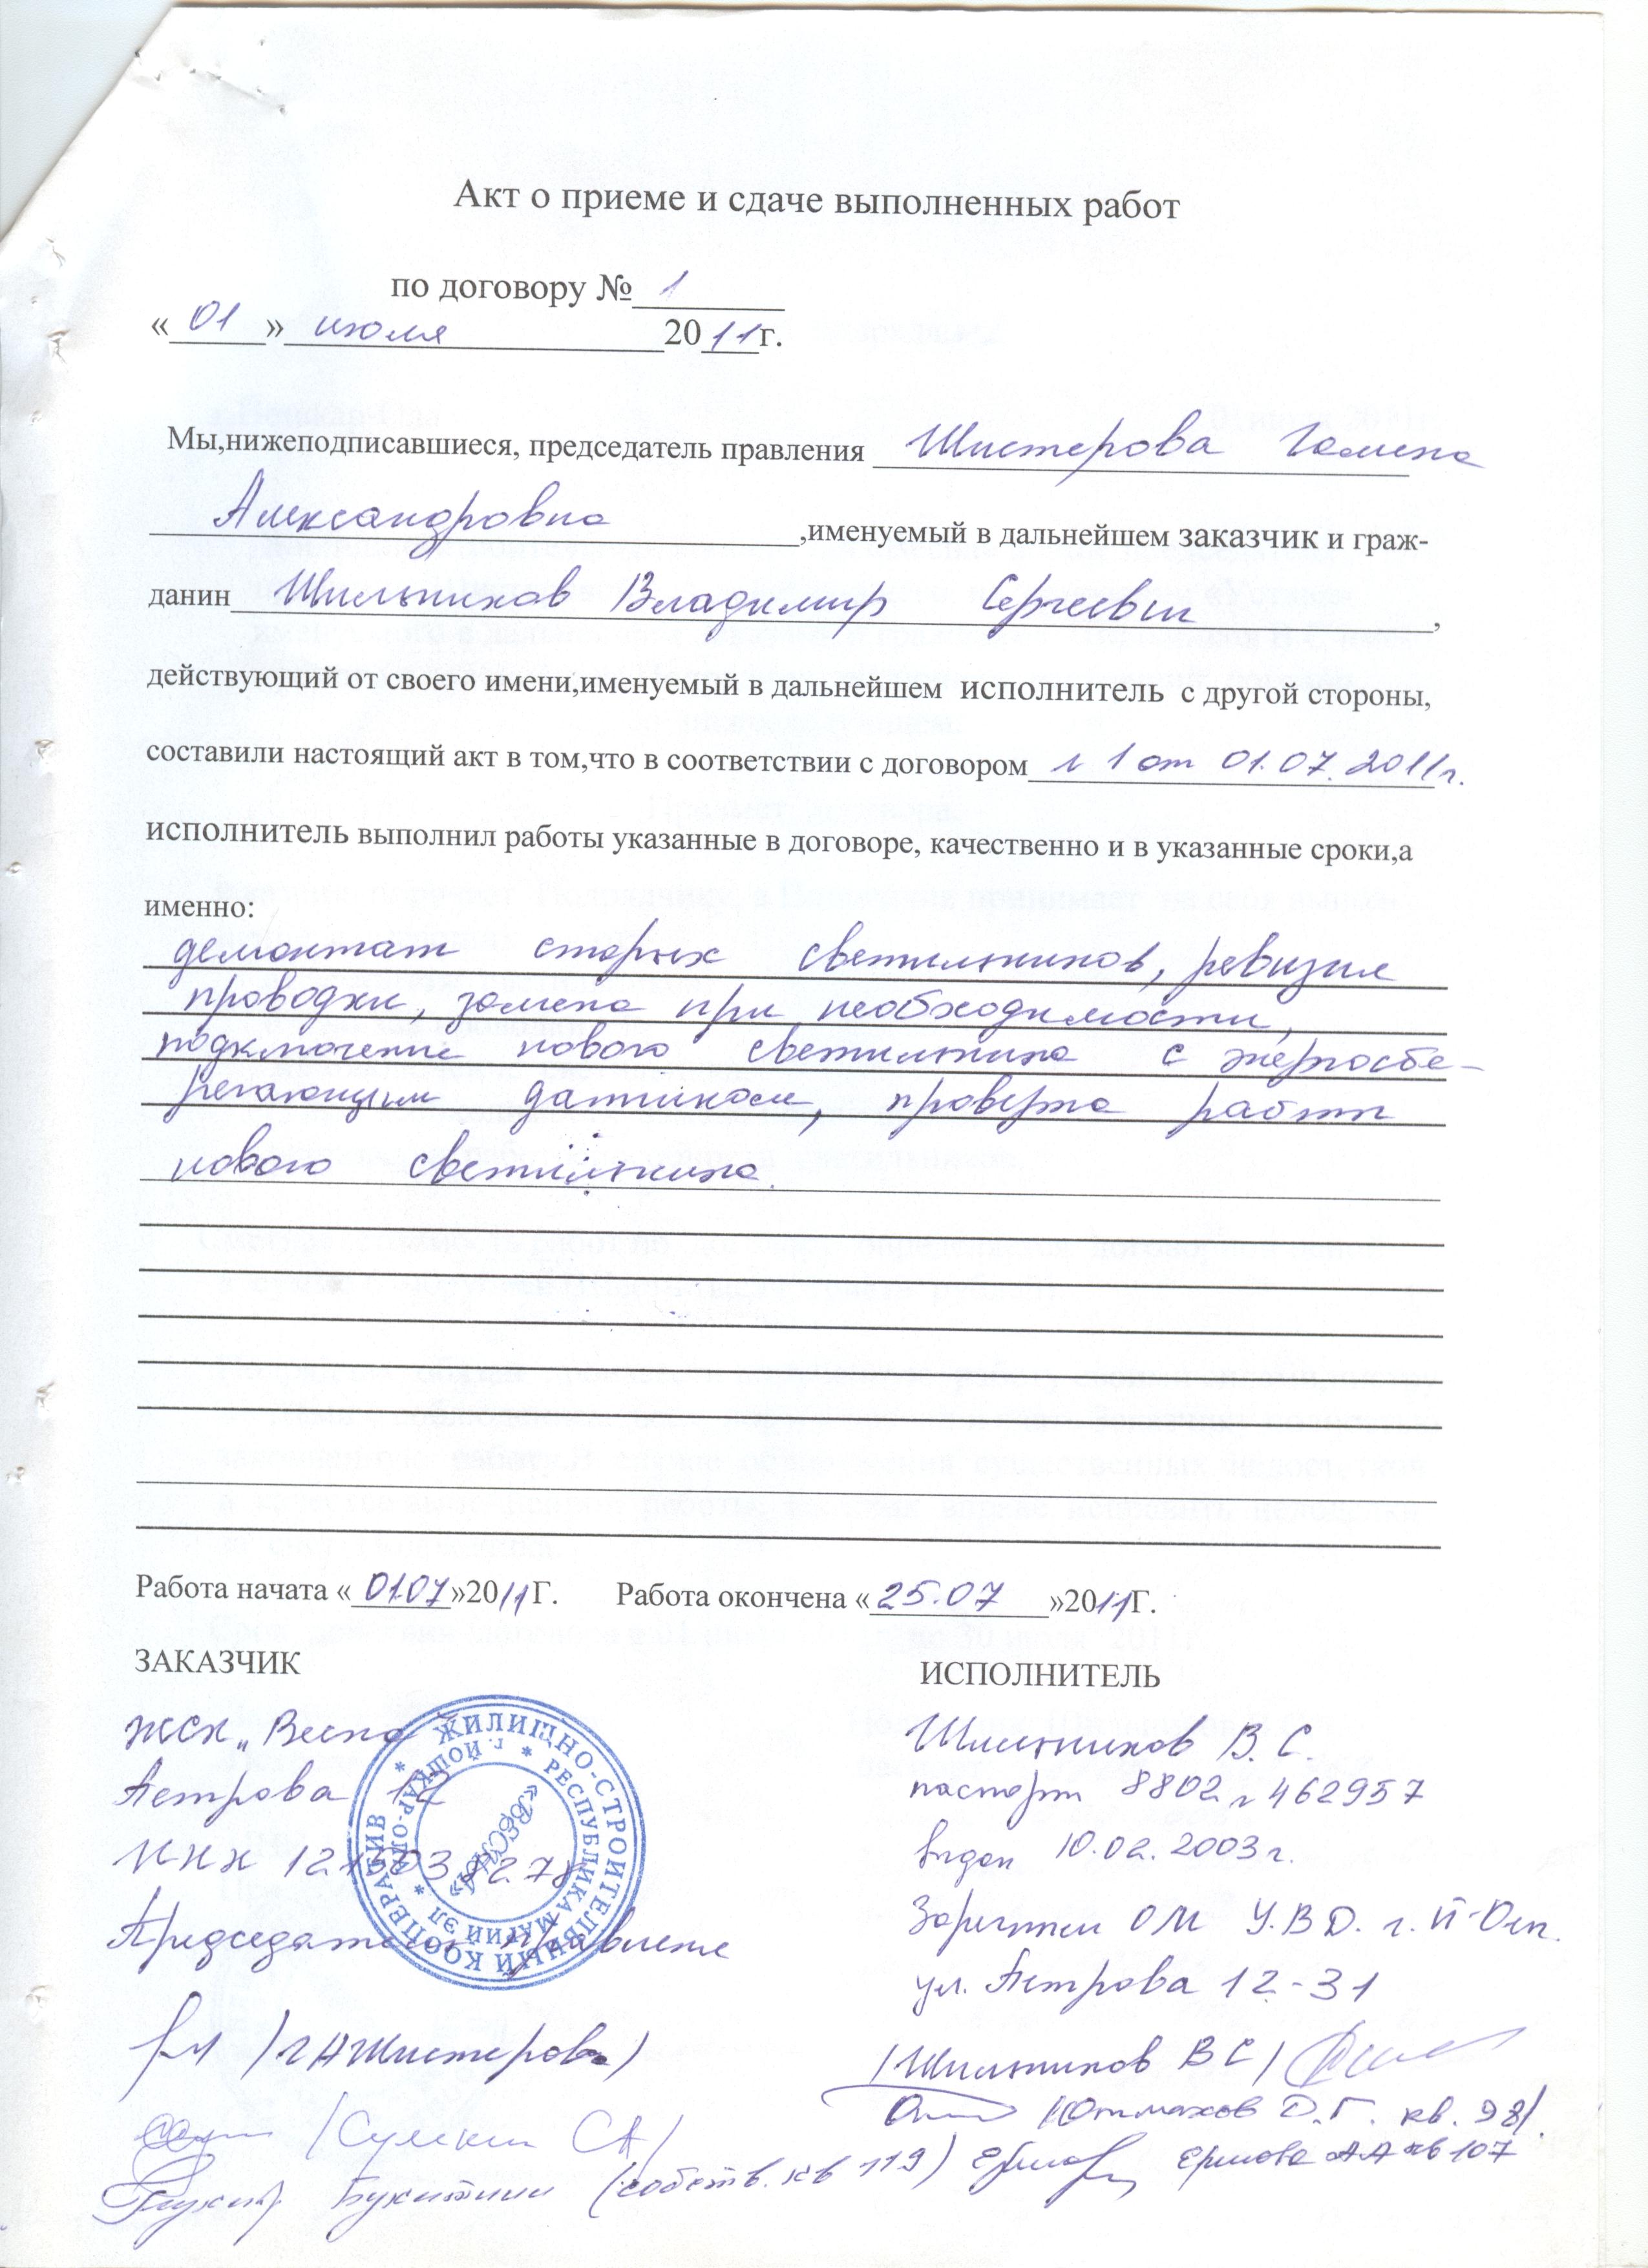 Акт о приеме и сдаче выполненных работ
по договору № 1
« 01 » июля 2011г.
Мы,нижеподписавшиеся, председатель правления Шистерова Галина
Александровна ,именуемый в дальнейшем заказчик и граж-
данин Шильников Владимир Сергеевич ,
действующий от своего имени,именуемый в дальнейшем исполнитель с другой стороны,
составили настоящий акт в том,что в соответствии с договором № 1 от 01.07.2011г.
исполнитель выполнил работы указанные в договоре, качественно и в указанные сроки,а
именно:
демонтаж старых светильников, ревизия
проводки, замена при необходимости,
подключение нового светильника с энергосбе-
регающим датчиком, проверка работы
нового светильника.
Работа начата « 01.07 »2011Г. Работа окончена « 25.07 »2011Г.
ЗАКАЗЧИК ИСПОЛНИТЕЛЬ
ЖСК „Весна"
Петрова 12
ИНН
Председатель правления
/Г А Шистерова/
/Сулекин СА/
(собств. кв 119)
ЖИЛИЩНО-СТРОИТЕЛЬНЫЙ КООПЕРАТИВ
* РЕСПУБЛИКА МАРИЙ ЭЛ * г. ЙОШКАР-ОЛА
«ВЕСНА»
Шильников В. С.
паспорт 8802 № 462957
выдан 10.02.2003г.
Заречным ОМ УВД. г. Й-Олы.
ул. Петрова 12-31
/Шильников ВС/
Д.Г. кв. 98/.
АА кв 107